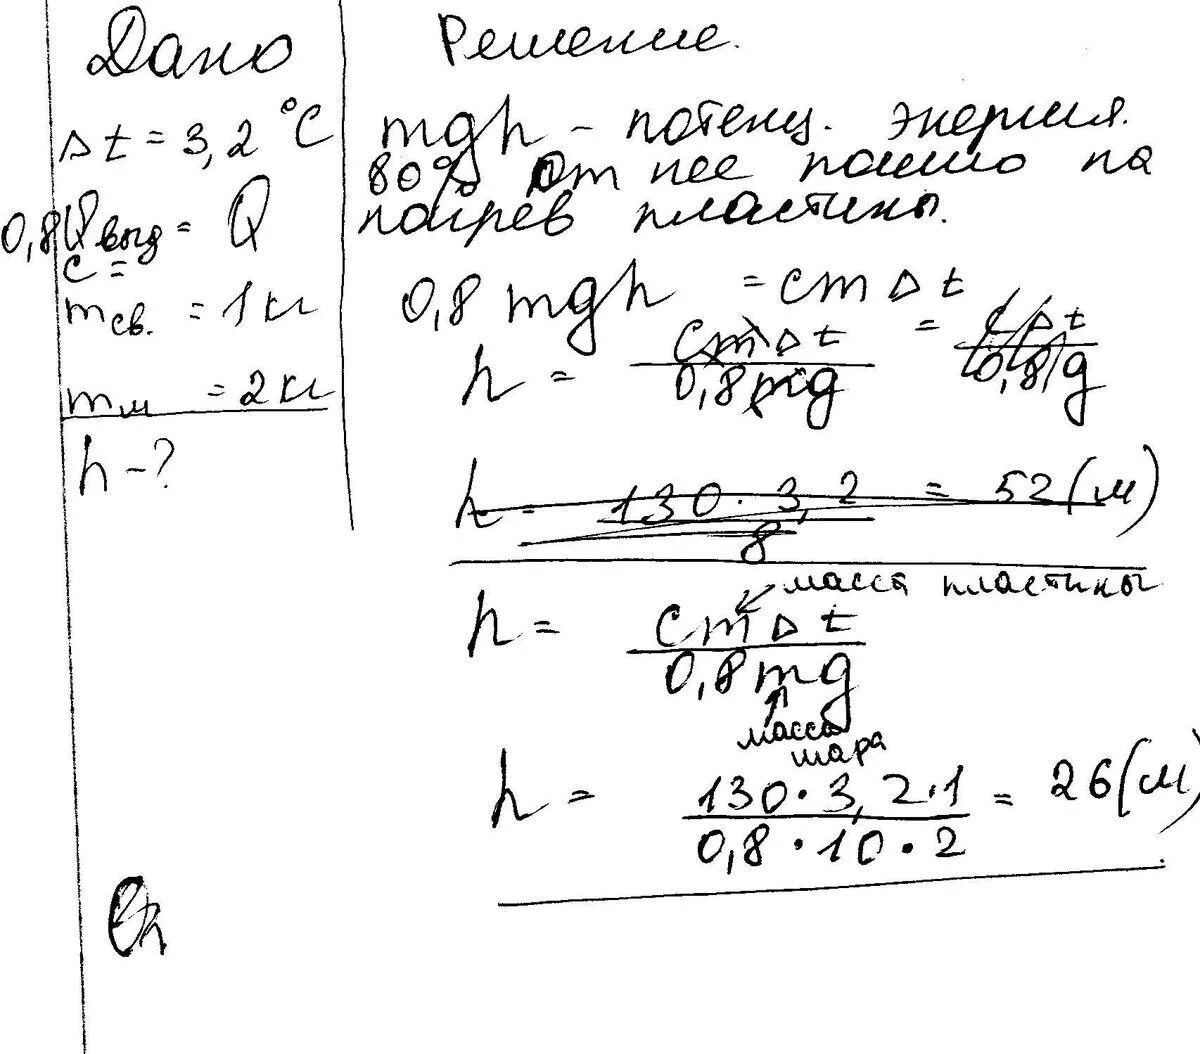 Дано
Δt = 3,2 °C
0,8Qвыд = Q
c =
mсв. = 1 кг
mм = 2 кг
h - ?
Решение.
mgh - потенц. энергия.
80% от нее пошло на
нагрев пластины.
0,8 mgh = cmΔt
h = cmΔt / 0,8mg = cΔt / 0,8g
h = 130 · 3,2 / 8 = 52 (м)
масса пластины
h = cmΔt / 0,8mg
масса
шара
h = 130 · 3,2 · 1 / 0,8 · 10 · 2 = 26 (м)